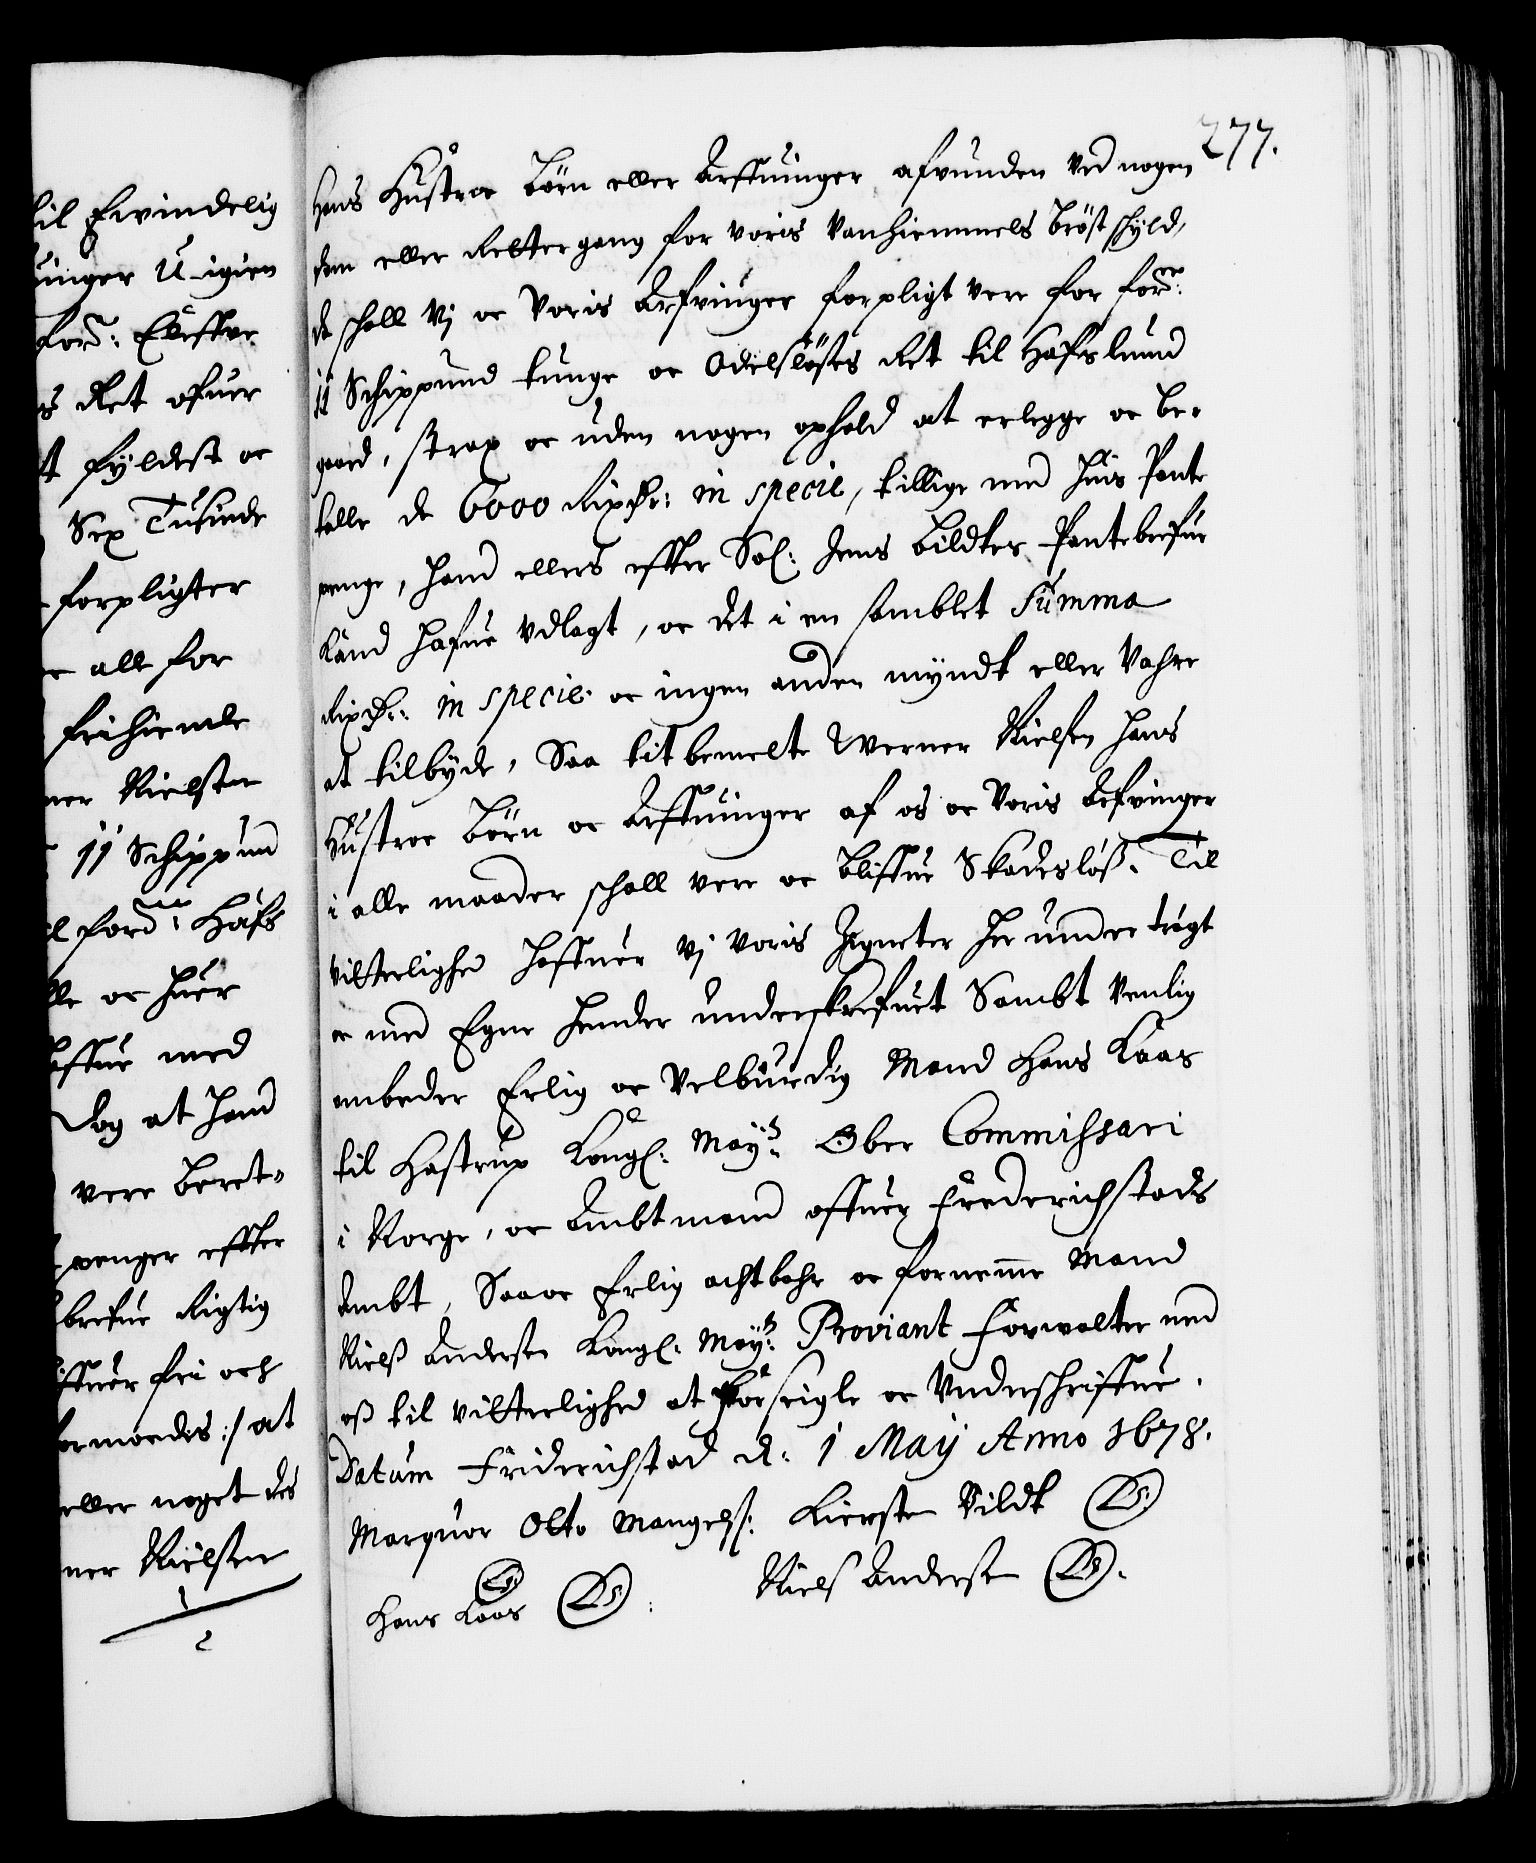 277.
til Ewindelig
uinger U-igien
for: Eleffter
s Ret ofuer
t fyldest oc
Sex Tusinde
forpligter
e alle for
frihiemle
ner Nielsen
11 Schippund
l fornne: Hafs
lle oc huer
affue med
Dog at hand
vere beret-
penger effter
brefue Rigtig
iffuer fri och
formoedes :/ at
eller noget des
ner Nielsen
1
2
Hans Hustroe Börn eller Arffuinger afvunden ved nogen
dom eller Rettergang for voris Vanhiemmels bröst skyld,
da schall Vj oc Voris Arfvinger forpligt vere for forne:
11 Schippund tunge oc Odelslösses Ret til Hafslund
gaard, strax oc uden nogen ophold at erlegge oc be-
talle de 6000 Rixdr: in specie, tillige med huis Pante
penge, hand ellers effter Sal: Jens Bildtes Pantebrefue
kand hafue Udlagt, oc det i en samblet Summa
Rixdr: in specie oc ingen anden myndt eller Vahre
at tilbyde, Saa titbemelte Werner Nielsen hans
Hustroe Börn oc Arffuinger af os oc Voris Arfvinger
i alle maader schall vere oc bliffue Skadeslöß. Til
vitterlighed haffuer Vj Voris Zigneter her under trögt
oc med Egne hender underskrefuet Sambt Venlig
ombeder Erlig oc Velburdig Mand Hans Kaas
til Hastrup Kongl: Mayts: Ober Commissari
i Norge, oc Ambtmand offuer Frederichstads
Ambt, Saa oc Erlig achtbahr oc fornemme Mand
Nielß Andersen Kongl: Mayts: Proviant Forvalter med
oß til vitterlighed at forseigle oc Underschriffue.
Datum Friderichstad d: 1 Maij Anno 1678.
Marquor Otto Mangelß: Kiersten Bildt (LS.)
(LS)
Hans Kaas (LS). Niels Andersen (LS).